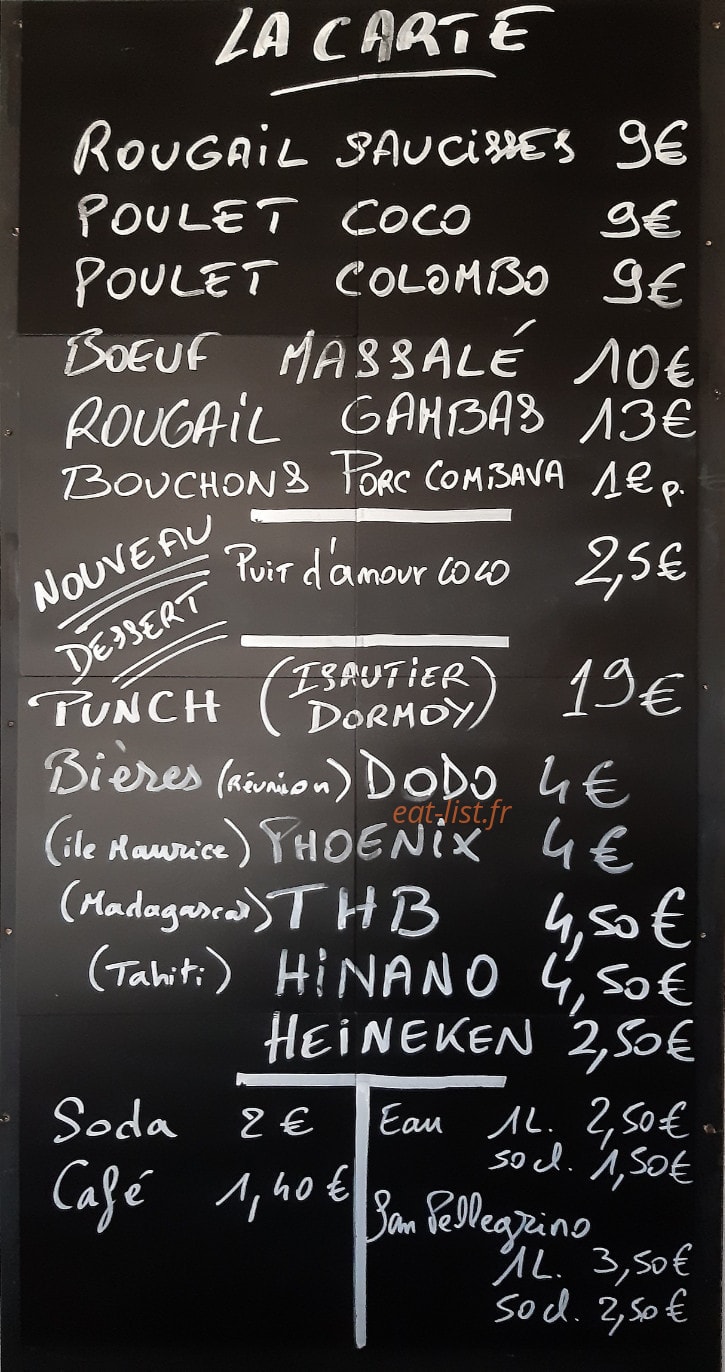 LA CARTE
ROUGAiL SAUCiSSES 9€
POULET COCO 9€
POULET COLOMBO 9€
BOEUF MASSALÉ 10€
ROUGAiL GAMBAS 13€
BOUCHONS PORC COMBAVA 1€ p.
NOUVEAU
DESSERT
PUiT d'amour coco 2,5€
PUNCH (ISAUTiER DORMOY) 19€
Bières (Réunion) DODO 4€
eat-list.fr
(île Maurice) PHOENiX 4€
(Madagascar) THB 4,50€
(Tahiti) HiNANO 4,50€
HEiNEKEN 2,50€
Soda 2€
Café 1,40€
Eau 1L. 2,50€
50cl. 1,50€
San Pellegrino
1L. 3,50€
50cl. 2,50€